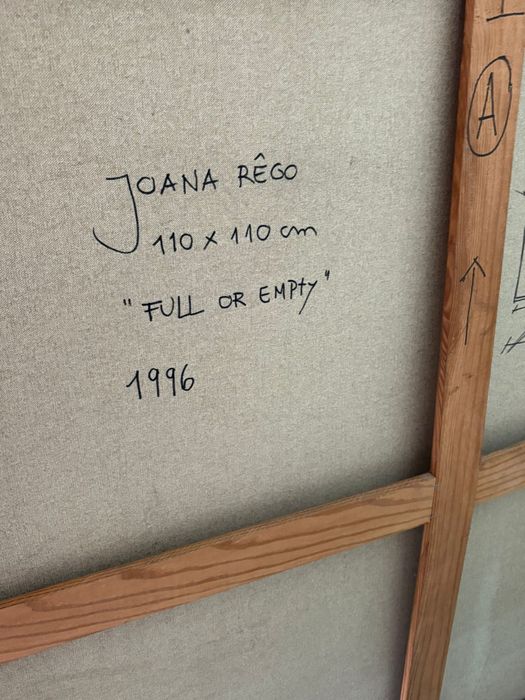 JOANA RÊGO
110 x 110 cm
"FULL OR EMPty"
1996
A